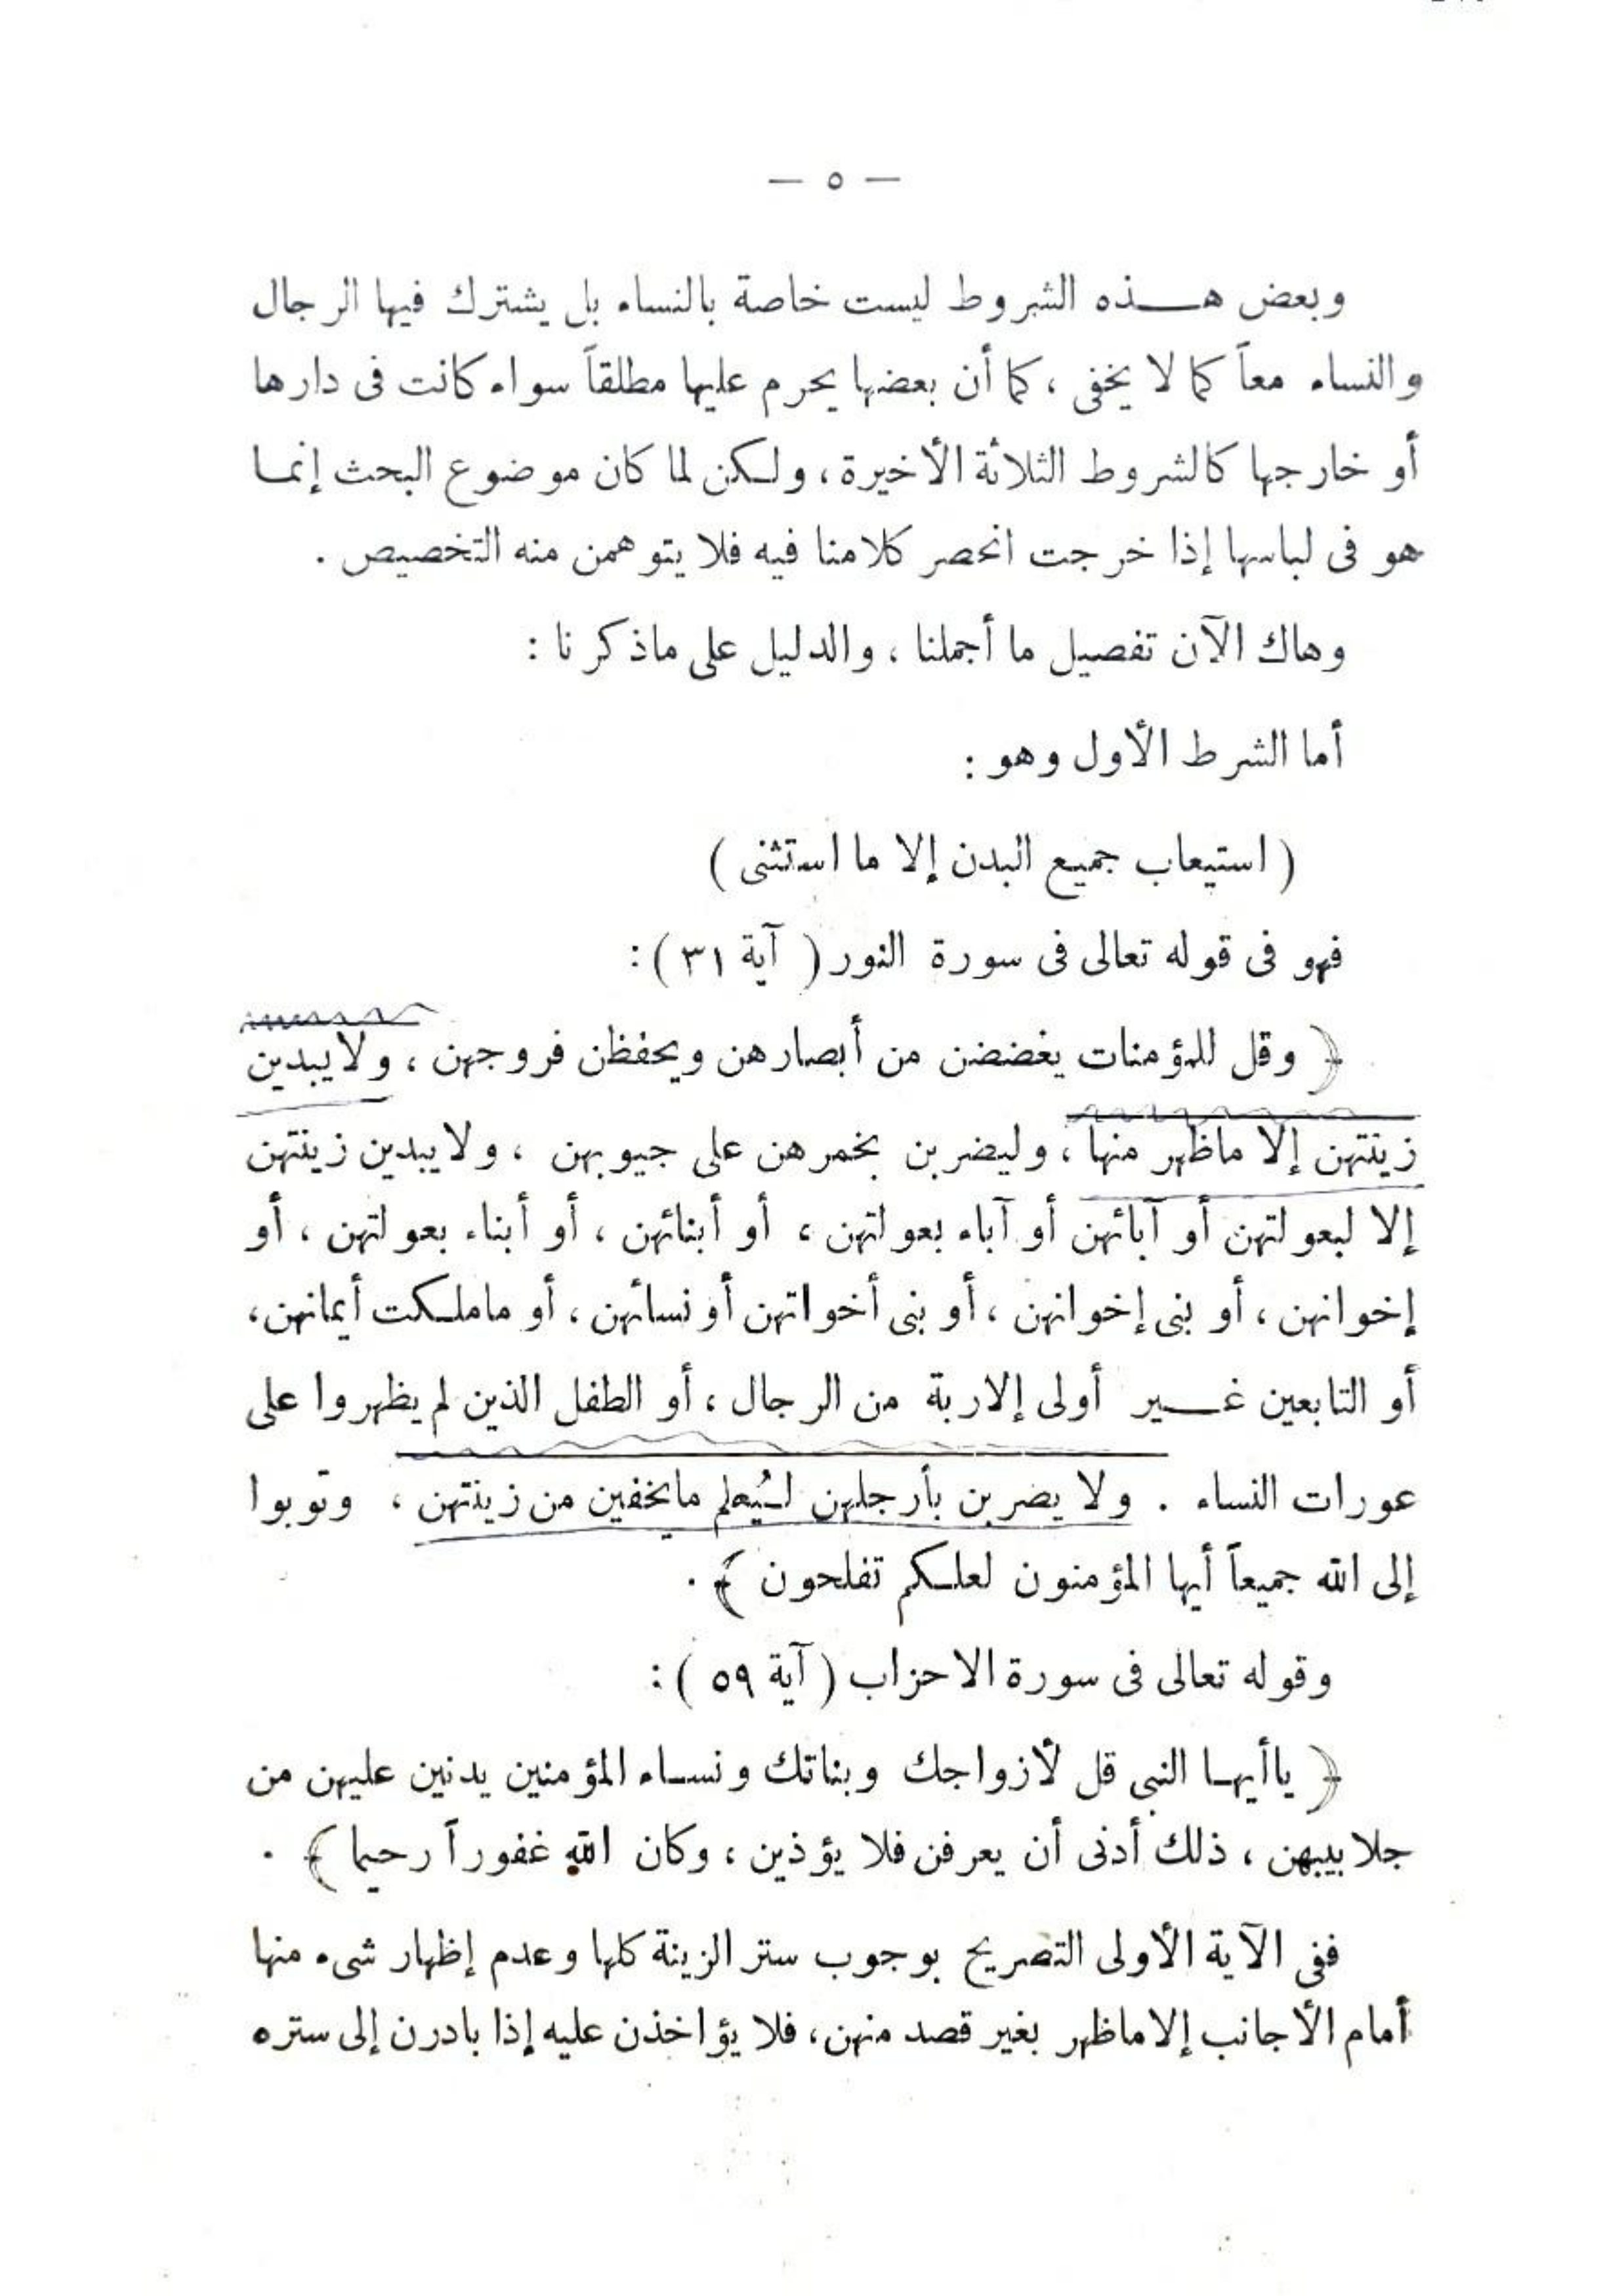 — ٥ —
وبعض هـــذه الشروط ليست خاصة بالنساء بل يشترك فيها الرجال
والنساء معاً كما لا يخفى ، كما أن بعضها يحرم عليها مطلقاً سواء كانت فى دارها
أو خارجها كالشروط الثلاثة الأخيرة ، ولكن لما كان موضوع البحث إنما
هو فى لباسها إذا خرجت انحصر كلامنا فيه فلا يتوهمن منه التخصيص .
وهاك الآن تفصيل ما أجملنا ، والدليل على ماذكرنا :
أما الشرط الأول وهو :
( استيعاب جميع البدن إلا ما استثنى )
فهو فى قوله تعالى فى سورة النور ( آية ٣١ ) :
﴿ وقل للمؤمنات يغضضن من أبصارهن ويحفظن فروجهن ، ولا يبدين
زينتهن إلا ماظهر منها ، وليضربن بخمرهن على جيوبهن ، ولا يبدين زينتهن
إلا لبعولتهن أو آبائهن أو آباء بعولتهن ، أو أبنائهن ، أو أبناء بعولتهن ، أو
إخوانهن ، أو بنى إخوانهن ، أو بنى أخواتهن أو نسائهن ، أو ماملكت أيمانهن ،
أو التابعين غـــير أولى إلاربة من الرجال ، أو الطفل الذين لم يظهروا على
عورات النساء . ولا يضربن بأرجلهن ليُعلم مايخفين من زينتهن ، وتوبوا
إلى الله جميعاً أيها المؤمنون لعلكم تفلحون ﴾ .
وقوله تعالى فى سورة الاحزاب ( آية ٥٩ ) :
﴿ ياأيها النبى قل لأزواجك وبناتك ونساء المؤمنين يدنين عليهن من
جلابيبهن ، ذلك أدنى أن يعرفن فلا يؤذين ، وكان الله غفوراً رحيما ﴾ .
ففى الآية الأولى التصريح بوجوب ستر الزينة كلها وعدم إظهار شىء منها
أمام الأجانب إلا ماظهر بغير قصد منهن ، فلا يؤاخذن عليه إذا بادرن إلى ستره